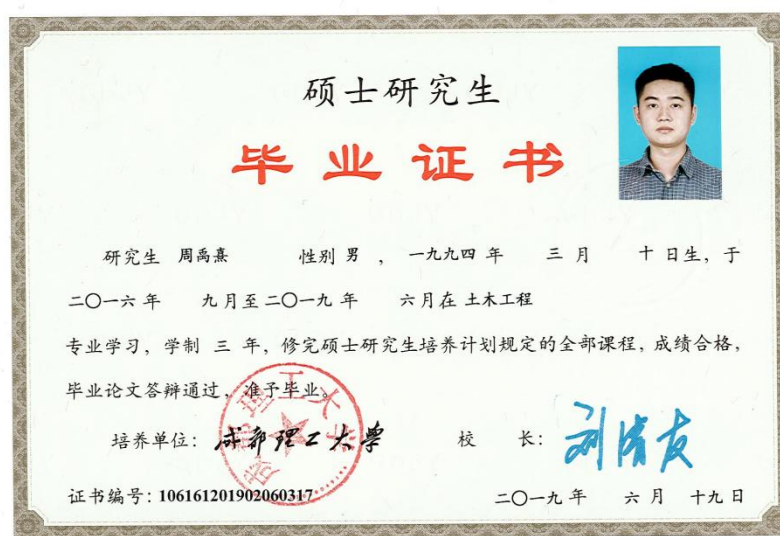 硕士研究生
毕业证书
研究生 周禹熹 性别 男 ， 一九九四 年 三 月 十 日生，于
二〇一六 年 九 月至 二〇一九 年 六 月在 土木工程
专业学习，学制 三 年，修完硕士研究生培养计划规定的全部课程，成绩合格，
毕业论文答辩通过，准予毕业。
成都理工大学
培养单位：成都理工大学 校 长：刘清友
证书编号：106161201902060317 二〇一九 年 六 月 十九 日